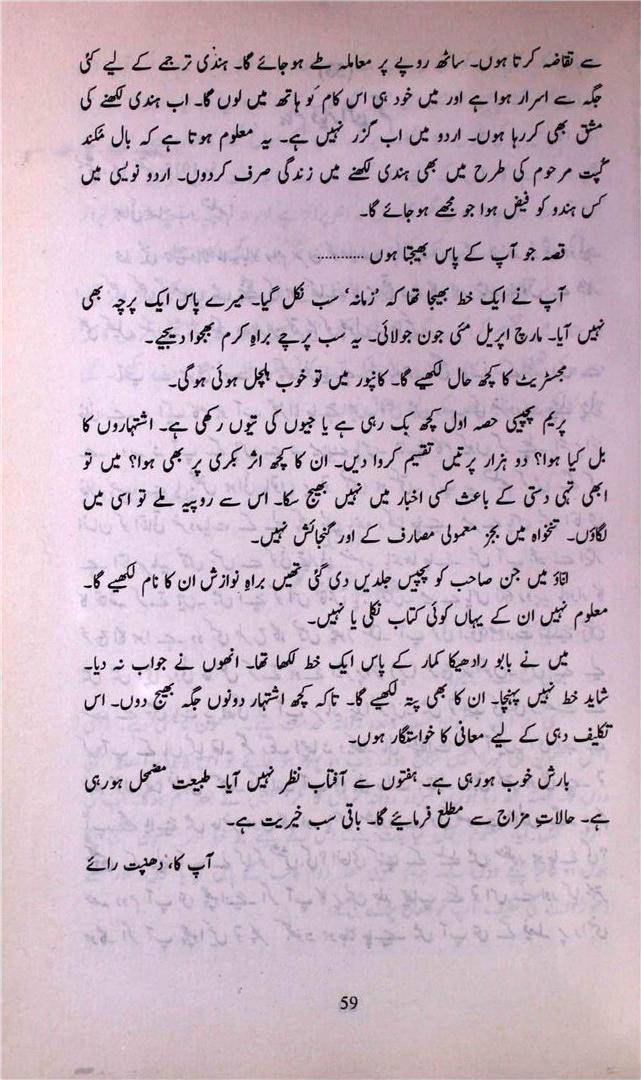 سے تقاضہ کرتا ہوں۔ ساٹھ روپے پر معاملہ طے ہوجائے گا۔ ہندی ترجمے کے لیے کئی
جگہ سے اسرار ہوا ہے اور میں خود ہی اس کام کو ہاتھ میں لوں گا۔ اب ہندی لکھنے کی
مشق بھی کررہا ہوں۔ اردو میں اب گزر نہیں ہے۔ یہ معلوم ہوتا ہے کہ بال مُکند
گپت مرحوم کی طرح میں بھی ہندی لکھنے میں زندگی صرف کردوں۔ اردو نویسی میں
کس ہندو کو فیض ہوا جو مجھے ہوجائے گا۔
قصہ جو آپ کے پاس بھیجتا ہوں ............
آپ نے ایک خط بھیجا تھا کہ ’زمانہ‘ سب نکل گیا۔ میرے پاس ایک پرچہ بھی
نہیں آیا۔ مارچ اپریل مئی جون جولائی۔ یہ سب پرچے براہِ کرم بھجوا دیجیے۔
مجسٹریٹ کا کچھ حال لکھیے گا۔ کانپور میں تو خوب ہلچل ہوئی ہوگی۔
پریم پچیسی حصہ اول کچھ بک رہی ہے یا جیوں کی تیوں رکھی ہے۔ اشتہاروں کا
بل کیا ہوا؟ دو ہزار پرتیں تقسیم کروا دیں۔ ان کا کچھ اثر بکری پر بھی ہوا؟ میں تو
ابھی تہی دستی کے باعث کسی اخبار میں نہیں بھیج سکا۔ اس سے روپیہ ملے تو اسی میں
لگاؤں۔ تنخواہ میں بجز معمولی مصارف کے اور گنجائش نہیں۔
اناؤ میں جن صاحب کو پچیس جلدیں دی گئی تھیں براہِ نوازش ان کا نام لکھیے گا۔
معلوم نہیں ان کے یہاں کوئی کتاب نکلی یا نہیں۔
میں نے بابو رادھیکا کمار کے پاس ایک خط لکھا تھا۔ انھوں نے جواب نہ دیا۔
شاید خط نہیں پہنچا۔ ان کا بھی پتہ لکھیے گا۔ تاکہ کچھ اشتہار دونوں جگہ بھیج دوں۔ اس
تکلیف دہی کے لیے معافی کا خواستگار ہوں۔
بارش خوب ہورہی ہے۔ ہفتوں سے آفتاب نظر نہیں آیا۔ طبیعت مضمحل ہورہی
ہے۔ حالاتِ مزاج سے مطلع فرمائیے گا۔ باقی سب خیریت ہے۔
آپ کا، دھنپت رائے
59